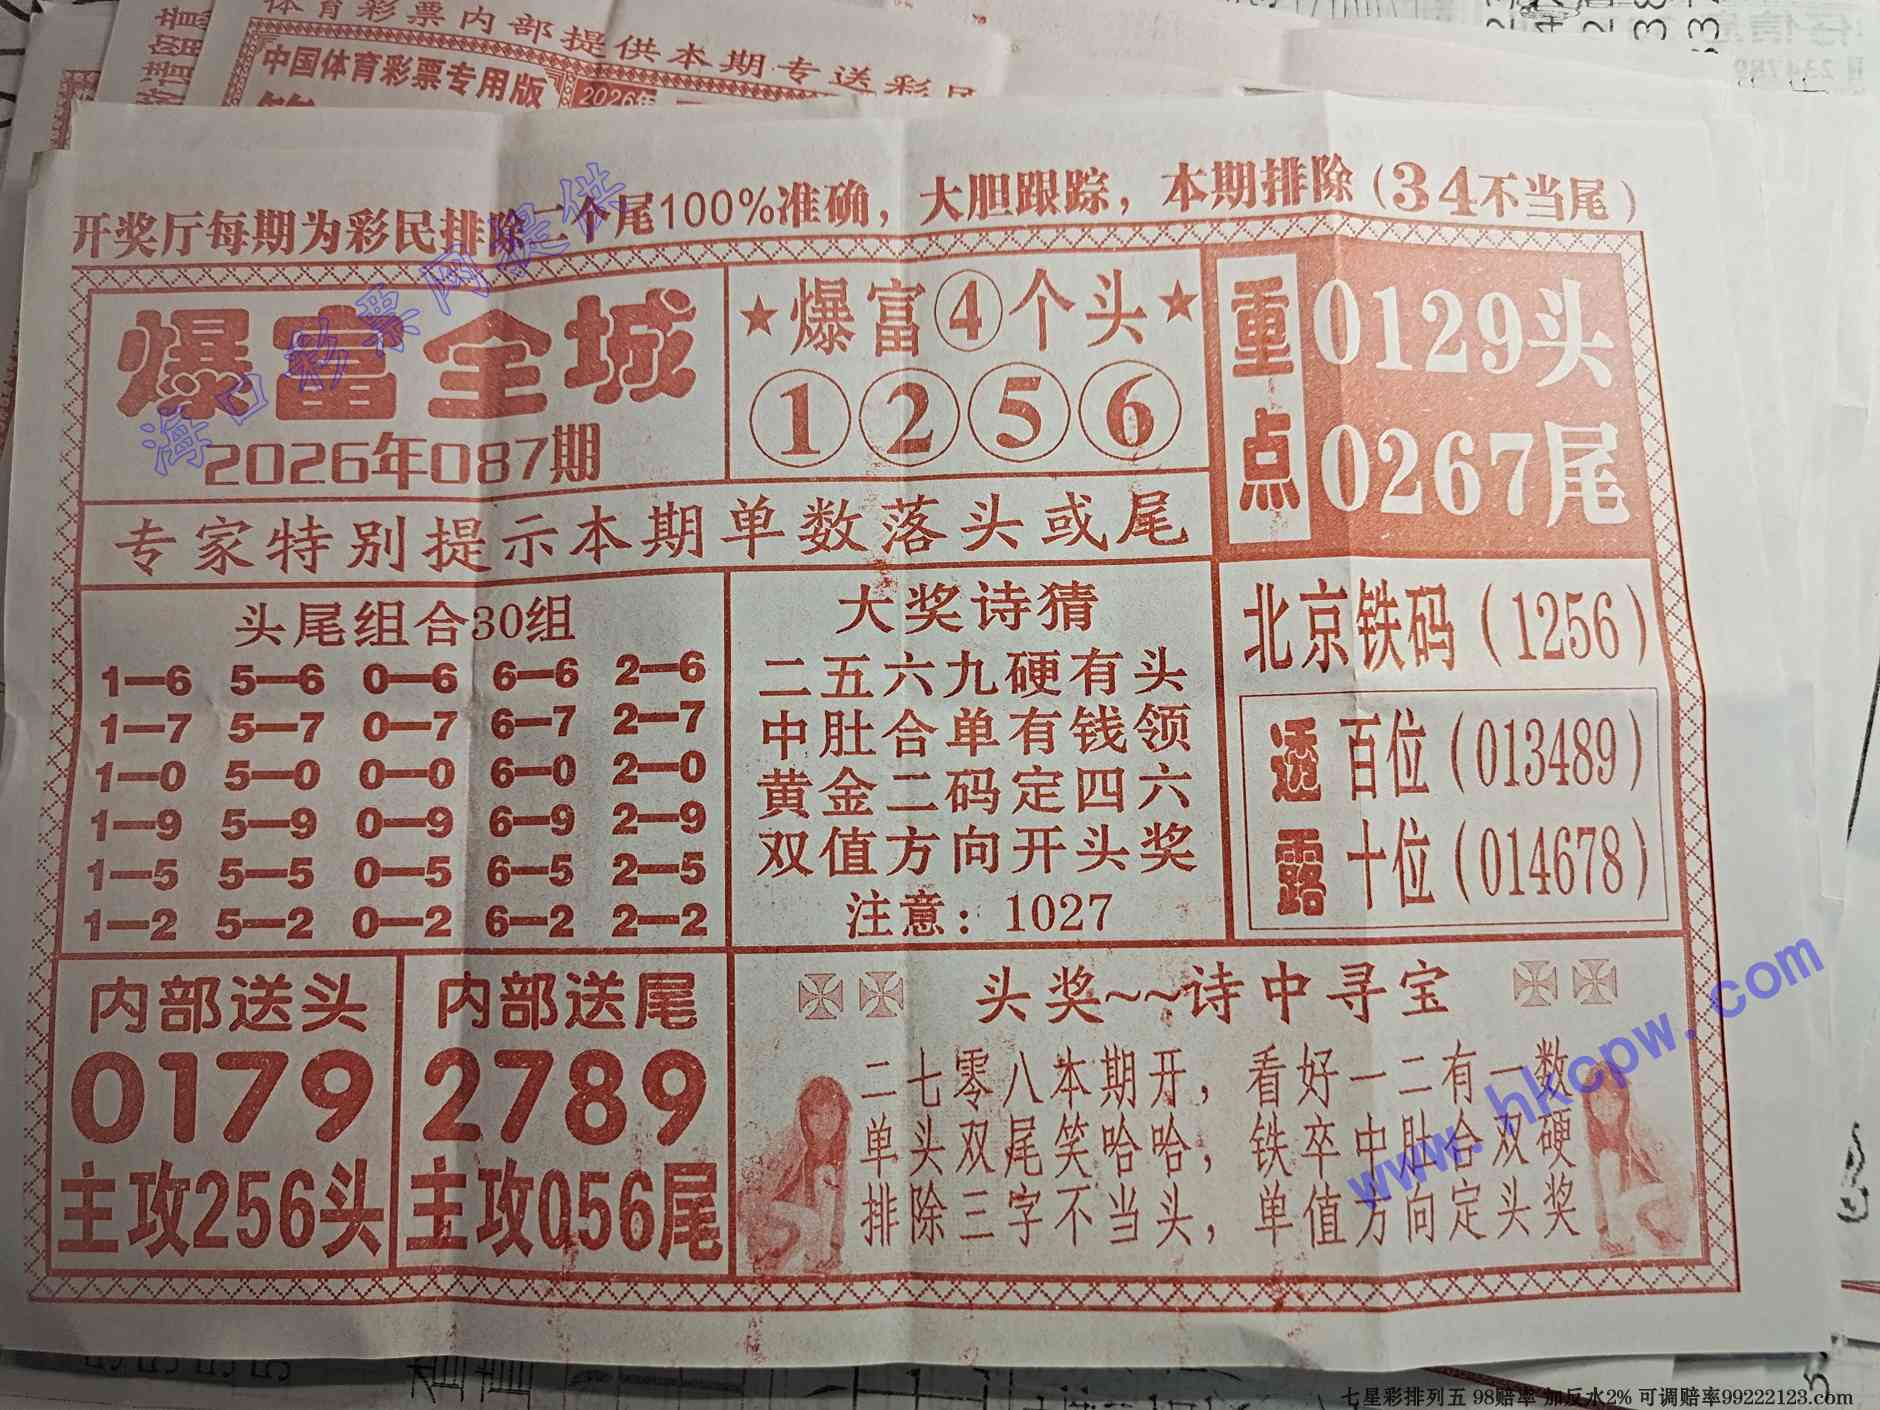 体育彩票内部提供本期专送彩民
中国体育彩票专用版
2026年
开奖厅每期为彩民排除二个尾100%准确，大胆跟踪，本期排除(34不当尾)
爆富全城
2026年087期
★爆富④个头★
① ② ⑤ ⑥
重点
0129头
0267尾
专家特别提示本期单数落头或尾
头尾组合30组
1—6 5—6 0—6 6—6 2—6
1—7 5—7 0—7 6—7 2—7
1—0 5—0 0—0 6—0 2—0
1—9 5—9 0—9 6—9 2—9
1—5 5—5 0—5 6—5 2—5
1—2 5—2 0—2 6—2 2—2
大奖诗猜
二五六九硬有头
中肚合单有钱领
黄金二码定四六
双值方向开头奖
注意：1027
北京铁码(1256)
透露
百位(013489)
十位(014678)
内部送头
0179
主攻256头
内部送尾
2789
主攻056尾
头奖~~诗中寻宝
二七零八本期开，看好一二有一数
单头双尾笑哈哈，铁卒中肚合双硬
排除三字不当头，单值方向定头奖
海口彩票网提供
www.hkcpw.com
七星彩排列五 98赔率 加反水2% 可调赔率99222123.com